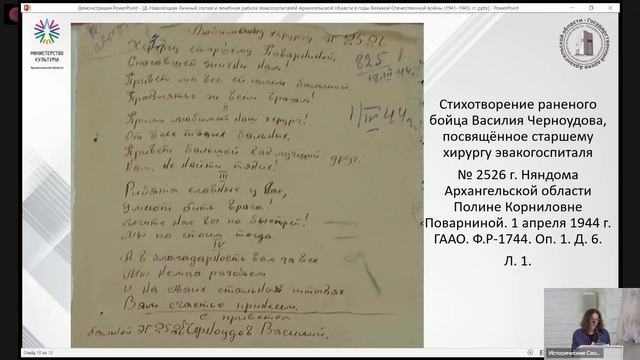 Демонстрация PowerPoint - [Д. Наволоцкая Личный состав и лечебная работа эвакогоспиталей Архангельской области в годы Великой Отечественной войны (1941–1945) гг.pptx] - PowerPoint
МИНИСТЕРСТВО
КУЛЬТУРЫ
Архангельской области
Любимому хирургу ЭГ 2526
Хирургу старшему Поварниной,
Спасавшей жизни нам!
Привет мы все
И
Прими любимый наш хирург!
От всех твоих больных,
Привет большой наилучший друг
Нам, не найти таких!
III
Ребята славные у вас,
Умеют быть врача!
Лечите нас вы по быстрей!
Мы но
IV
А в благодарность вам за всех
Мы немца разобьем
И на своих стальных штыках
Вам счастье принесем.
С приветом
больной ЭГ 2526 Черноудов Василий.
825
Стихотворение раненого
бойца Василия Черноудова,
посвящённое старшему
хирургу эвакогоспиталя
№ 2526 г. Няндома
Архангельской области
Полине Корниловне
Поварниной. 1 апреля 1944 г.
ГААО. Ф.Р-1744. Оп. 1. Д. 6.
Л. 1.
Слайд 10 из 12
Исторические Сво...